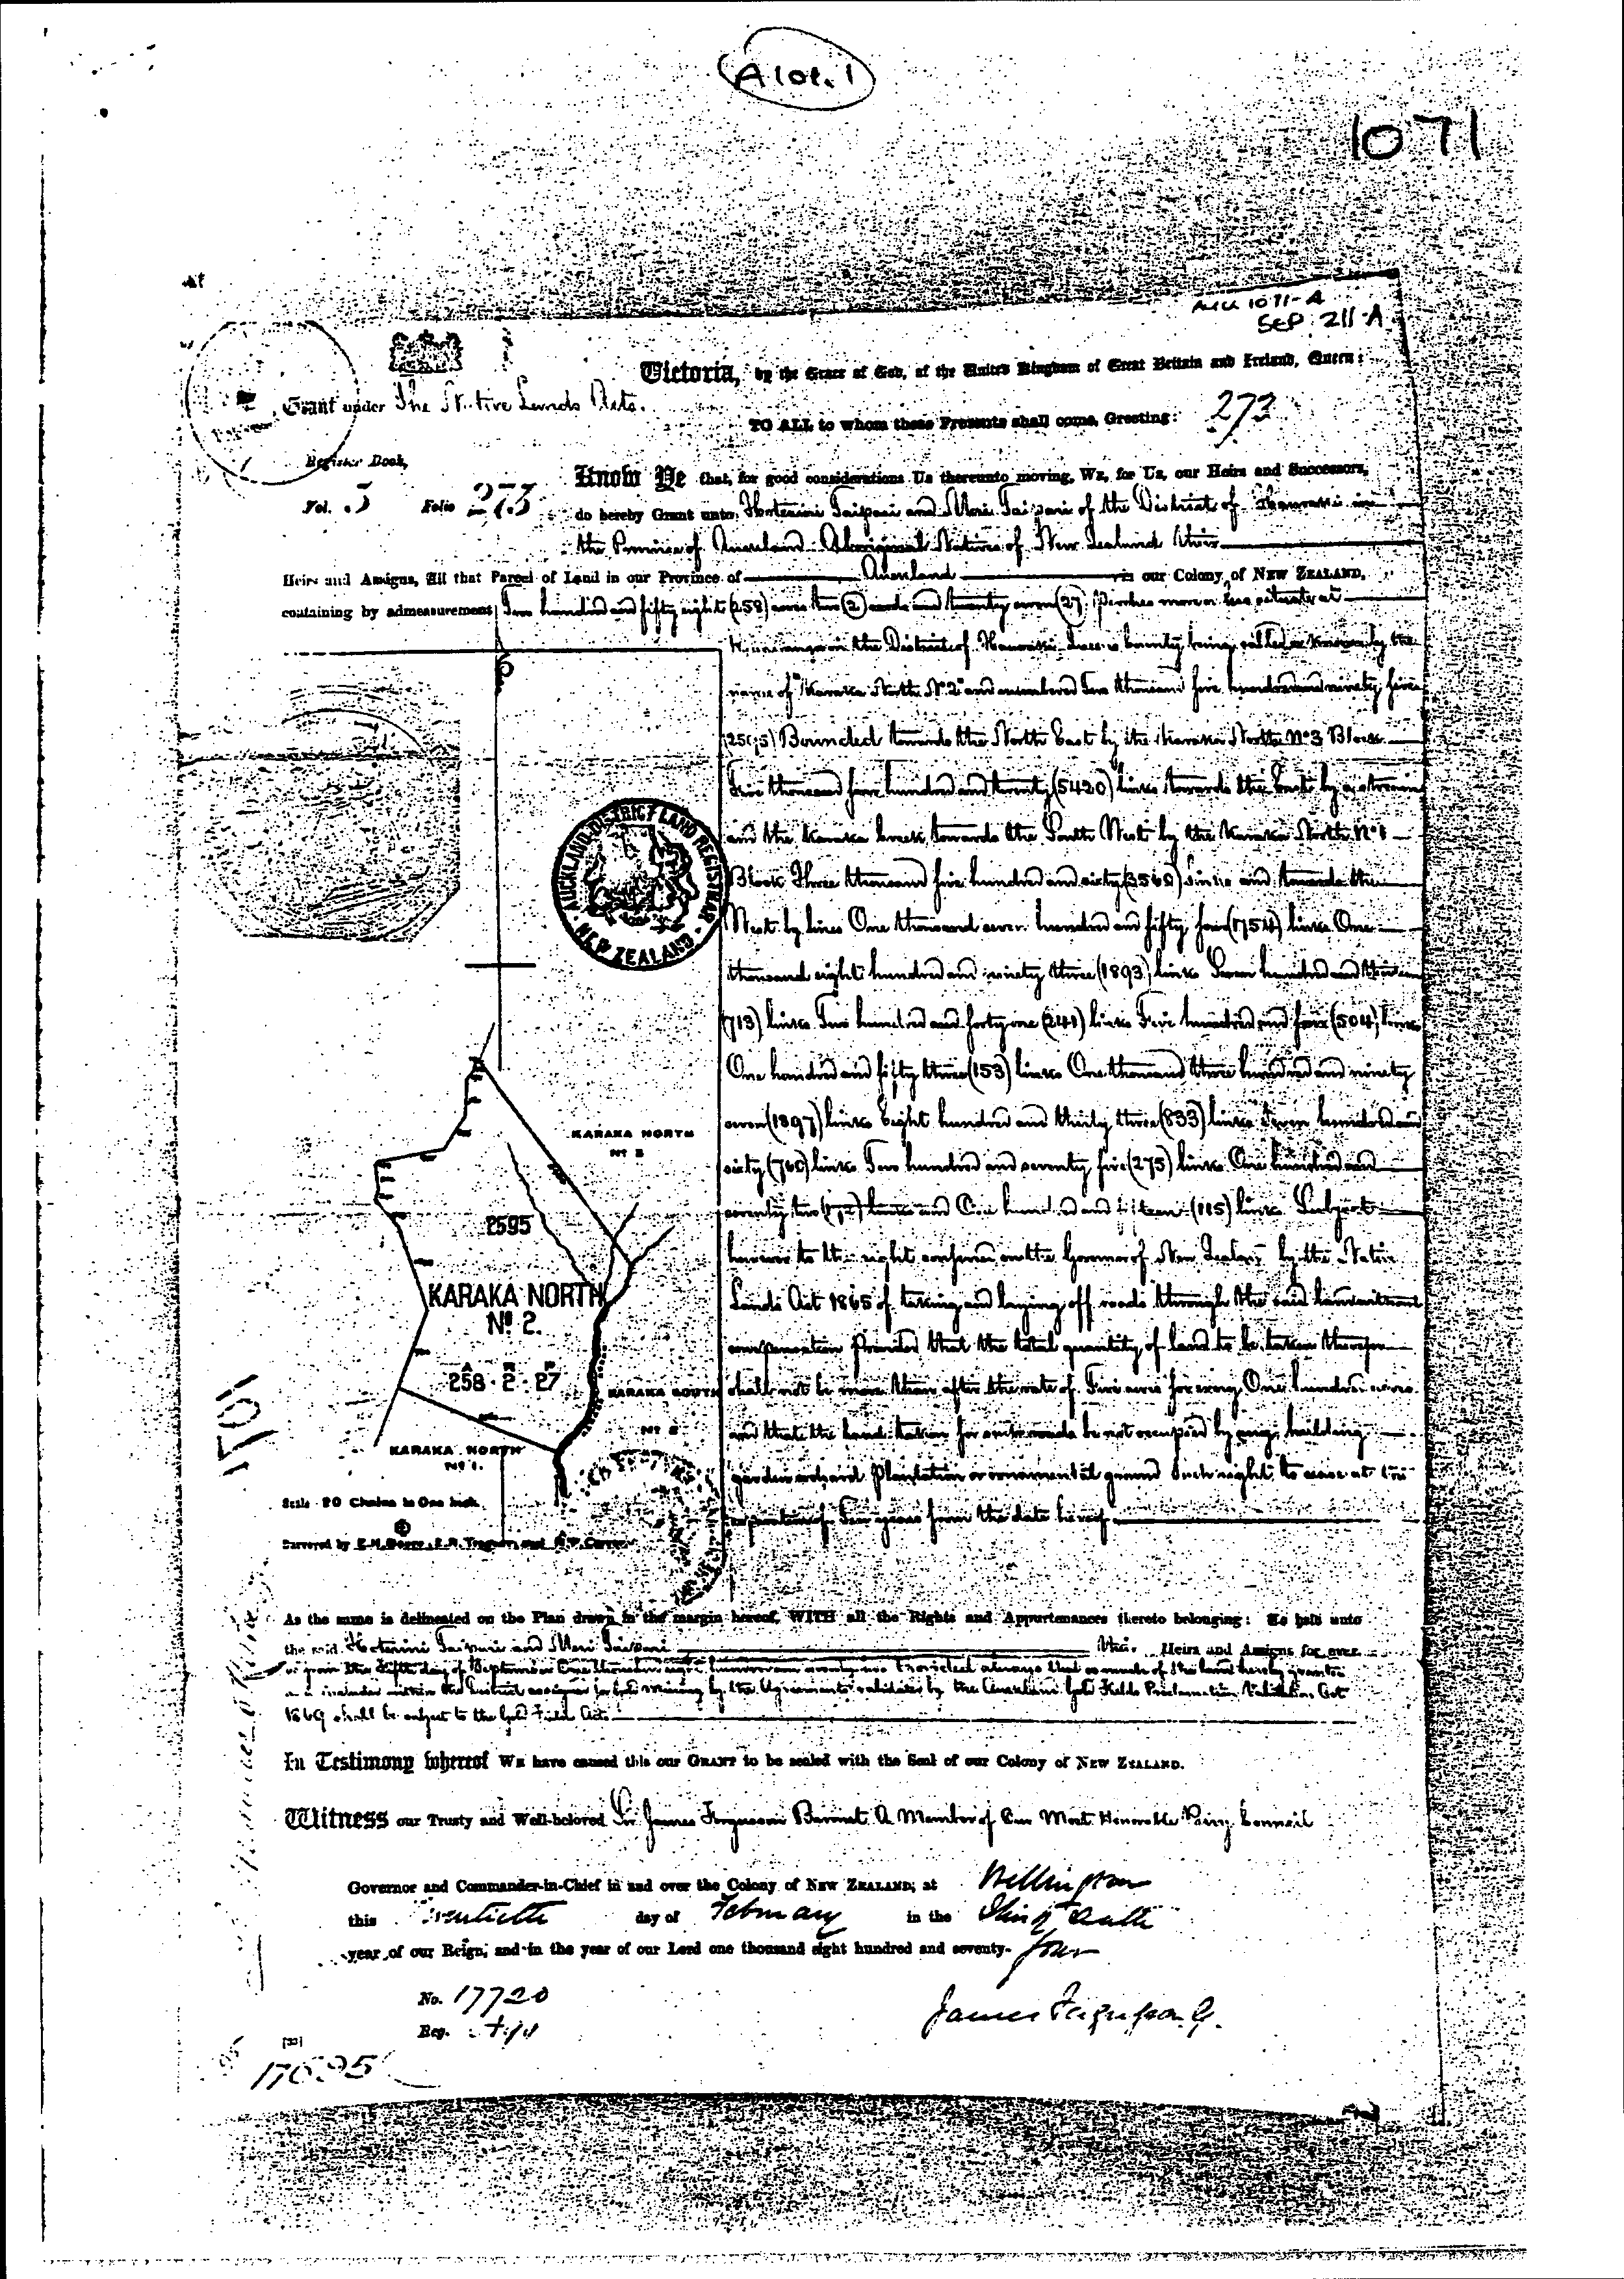 A lot. 1
1071
AKL 1071-A
SEP 211-A
Victoria, by the Grace of God, of the United Kingdom of Great Britain and Ireland, Queen:
Grant under The Native Lands Acts.
TO ALL to whom these Presents shall come, Greeting:
273
Register Book,
Vol. 3 Folio 273
Know Ye that, for good considerations Us thereunto moving, We, for Us, our Heirs and Successors,
do hereby Grant unto Hoterini Taipari and Meri Taipari of the District of Hauraki in
the Province of Auckland Aboriginal Natives of New Zealand their
Heirs and Assigns, All that Parcel of Land in our Province of Auckland in our Colony of NEW ZEALAND,
containing by admeasurement Two hundred and fifty eight (258) acres two (2) roods and twenty seven (27) perches more or less situate at
in the District of Hauraki County being called or known by the
name of "Karaka North No 2" and numbered Two thousand five hundred and ninety five
(2595) Bounded towards the North East by the Karaka North No 3 Block
Five thousand four hundred and twenty (5420) links towards the East by a stream
and the Karaka Creek towards the South West by the Karaka North No 1
Block Three thousand five hundred and sixty (3560) links and towards the
West by lines One thousand seven hundred and fifty four (1754) links One
thousand eight hundred and ninety three (1893) links Seven hundred and thirteen
(713) links Two hundred and forty one (241) links Five hundred and four (504) links
One hundred and fifty three (153) links One thousand three hundred and ninety
seven (1397) links Eight hundred and thirty three (833) links Seven hundred and
sixty (760) links Two hundred and seventy five (275) links One hundred and
seventy two (172) links and One hundred and fifteen (115) links Subject
however to the right conferred on the Governor of New Zealand by the Native
Lands Act 1865 of taking and laying off roads through the said land without
compensation Provided that the total quantity of land to be taken therefor
shall not be more than after the rate of Five acres for every One hundred acres
and that the land taken for such roads be not occupied by any building
garden orchard plantation or ornamental ground Such right to cease at the
expiration of Ten years from the date hereof
AUCKLAND DISTRICT LAND REGISTRAR
NEW ZEALAND
KARAKA NORTH
No 3
2595
KARAKA NORTH
No 2.
A R P
258 · 2 · 27
KARAKA SOUTH
KARAKA NORTH
No 1.
1071
Scale 20 Chains to One Inch
Surveyed by
As the same is delineated on the Plan drawn in the margin hereof, WITH all the Rights and Appurtenances thereto belonging: To hold unto
the said Hoterini Taipari and Meri Taipari their Heirs and Assigns for ever
as from the Fifth day of September One thousand eight hundred and seventy two Provided always that so much of the land hereby granted
as is included within the District assigned for gold mining by the Agreements validated by the Auckland Gold Fields Proclamation Validation Act
1869 shall be subject to the Gold Field Acts
In Testimony whereof WE have caused this our GRANT to be sealed with the Seal of our Colony of NEW ZEALAND.
Witness our Trusty and Well-beloved Sir James Fergusson Baronet A Member of Our Most Honorable Privy Council
Governor and Commander-in-Chief in and over the Colony of NEW ZEALAND; at Wellington
this Twentieth day of February in the Thirty Seventh
year of our Reign, and in the year of our Lord one thousand eight hundred and seventy-four
No. 17720
James Fergusson G.
Reg.
[33]
17695